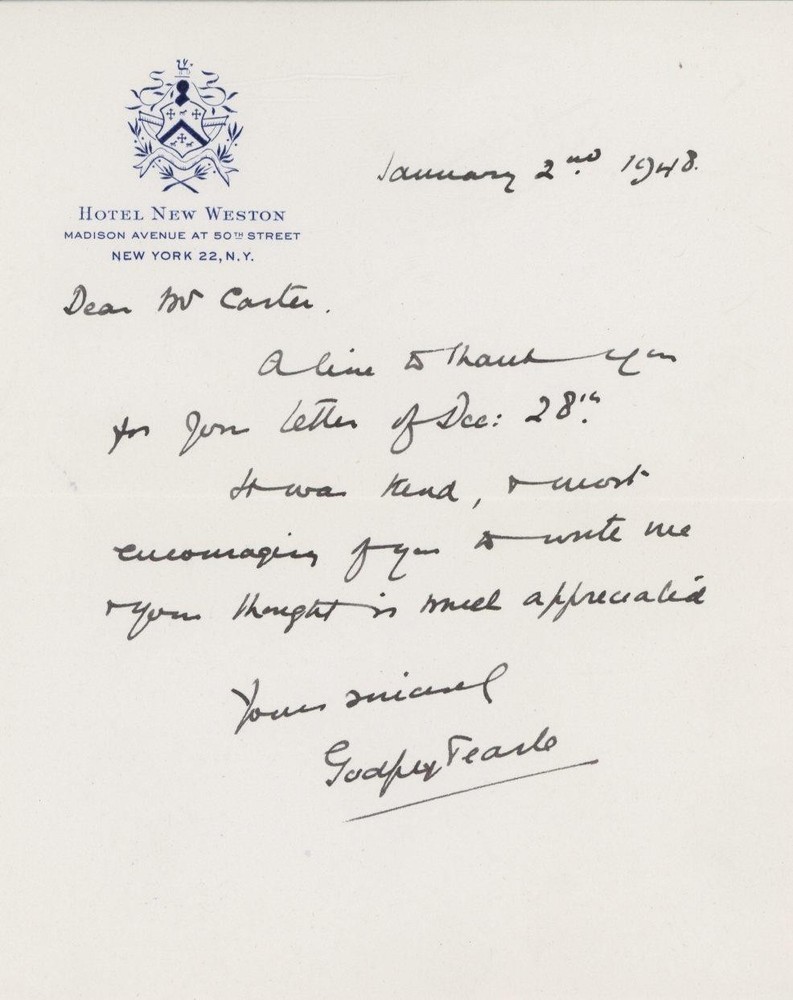 January 2nd 1948.
HOTEL NEW WESTON
MADISON AVENUE AT 50TH STREET
NEW YORK 22, N.Y.
Dear Mr Carter.
A line to thank you
for your letter of Dec: 28th.
It was kind, & most
encouraging of you to write me
& your thought is much appreciated
Yours sincerely
Godfrey Tearle